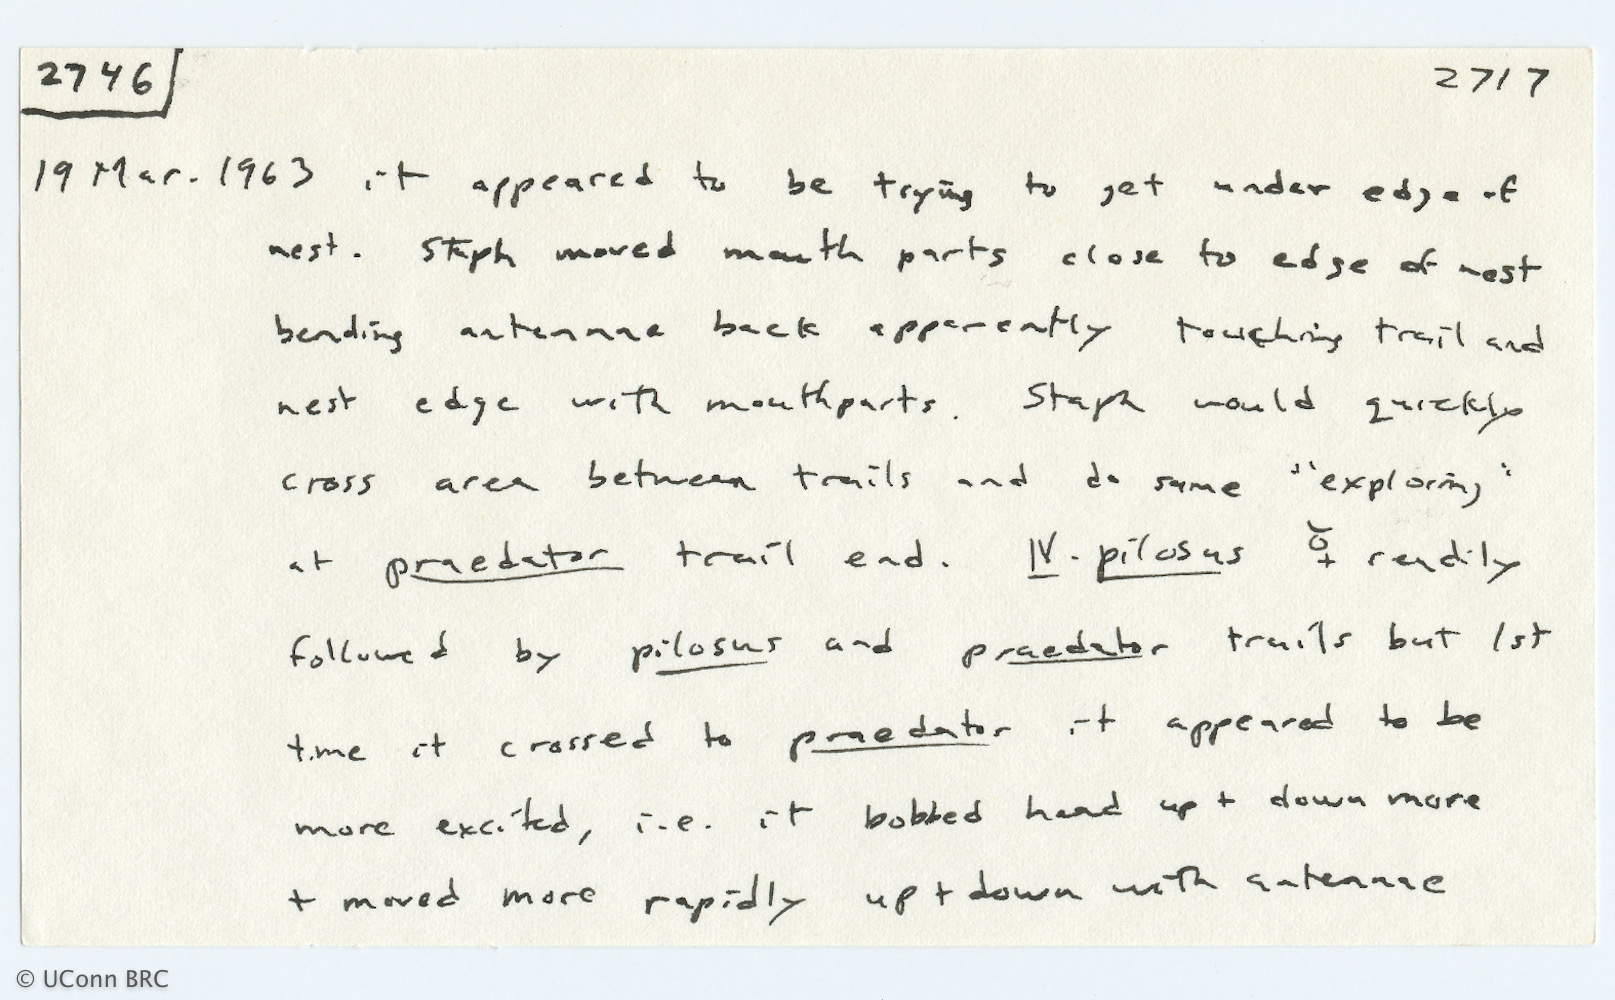 2746 2717
19 Mar. 1963 it appeared to be trying to get under edge of
nest. Staph moved mouth parts close to edge of nest
bending antennae back apparently touching trail and
nest edge with mouthparts. Staph would quickly
cross area between trails and do same "exploring"
at praedator trail end. N. pilosus ☿ readily
followed by pilosus and praedator trails but 1st
time it crossed to praedator it appeared to be
more excited, i.e. it bobbed head up + down more
+ moved more rapidly up + down with antennae
© UConn BRC